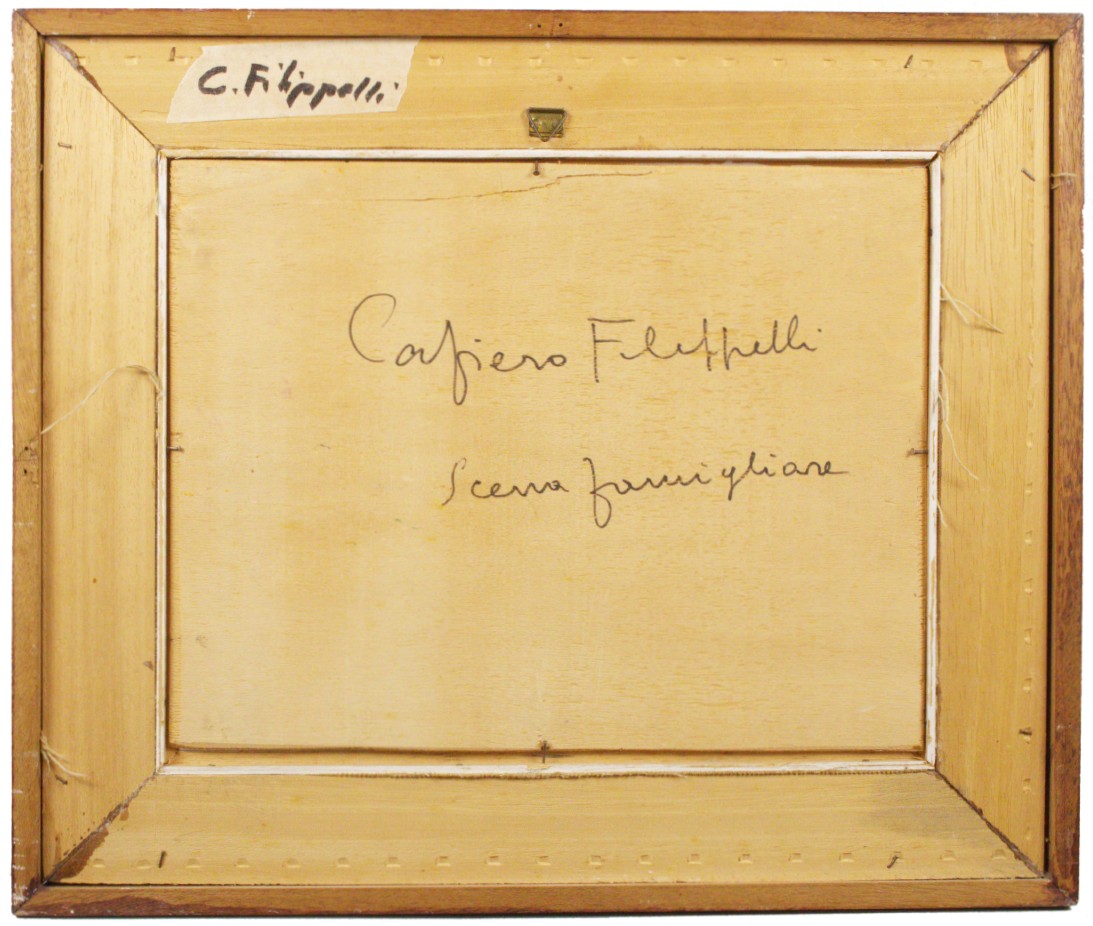 C. Filippelli
Cafiero Filippelli
Scena famigliare